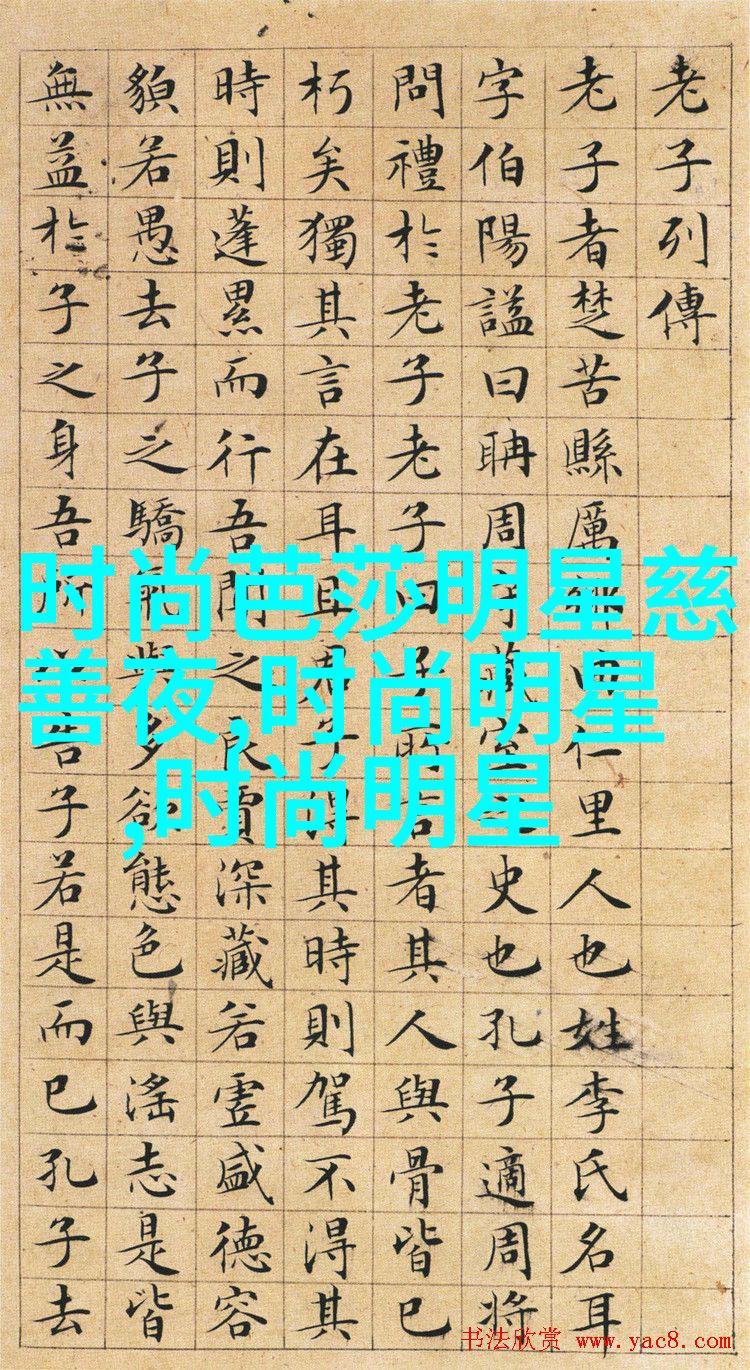 老子列傳
老子者楚苦縣厲鄉曲仁里人也姓李氏名耳
字伯陽謚曰聃周守藏室之史也孔子適周將
問禮於老子老子曰子所言者其人與骨皆已
朽矣獨其言在耳且君子得其時則駕不得其
時則蓬累而行吾聞之良賈深藏若虛盛德容
貌若愚去子之驕氣與多欲態色與滛志是皆
無益於子之身吾所以告子若是而已孔子去
时尚芭莎明星慈
善夜,时尚明星
,时尚明星
书法欣赏 www.yac8.com